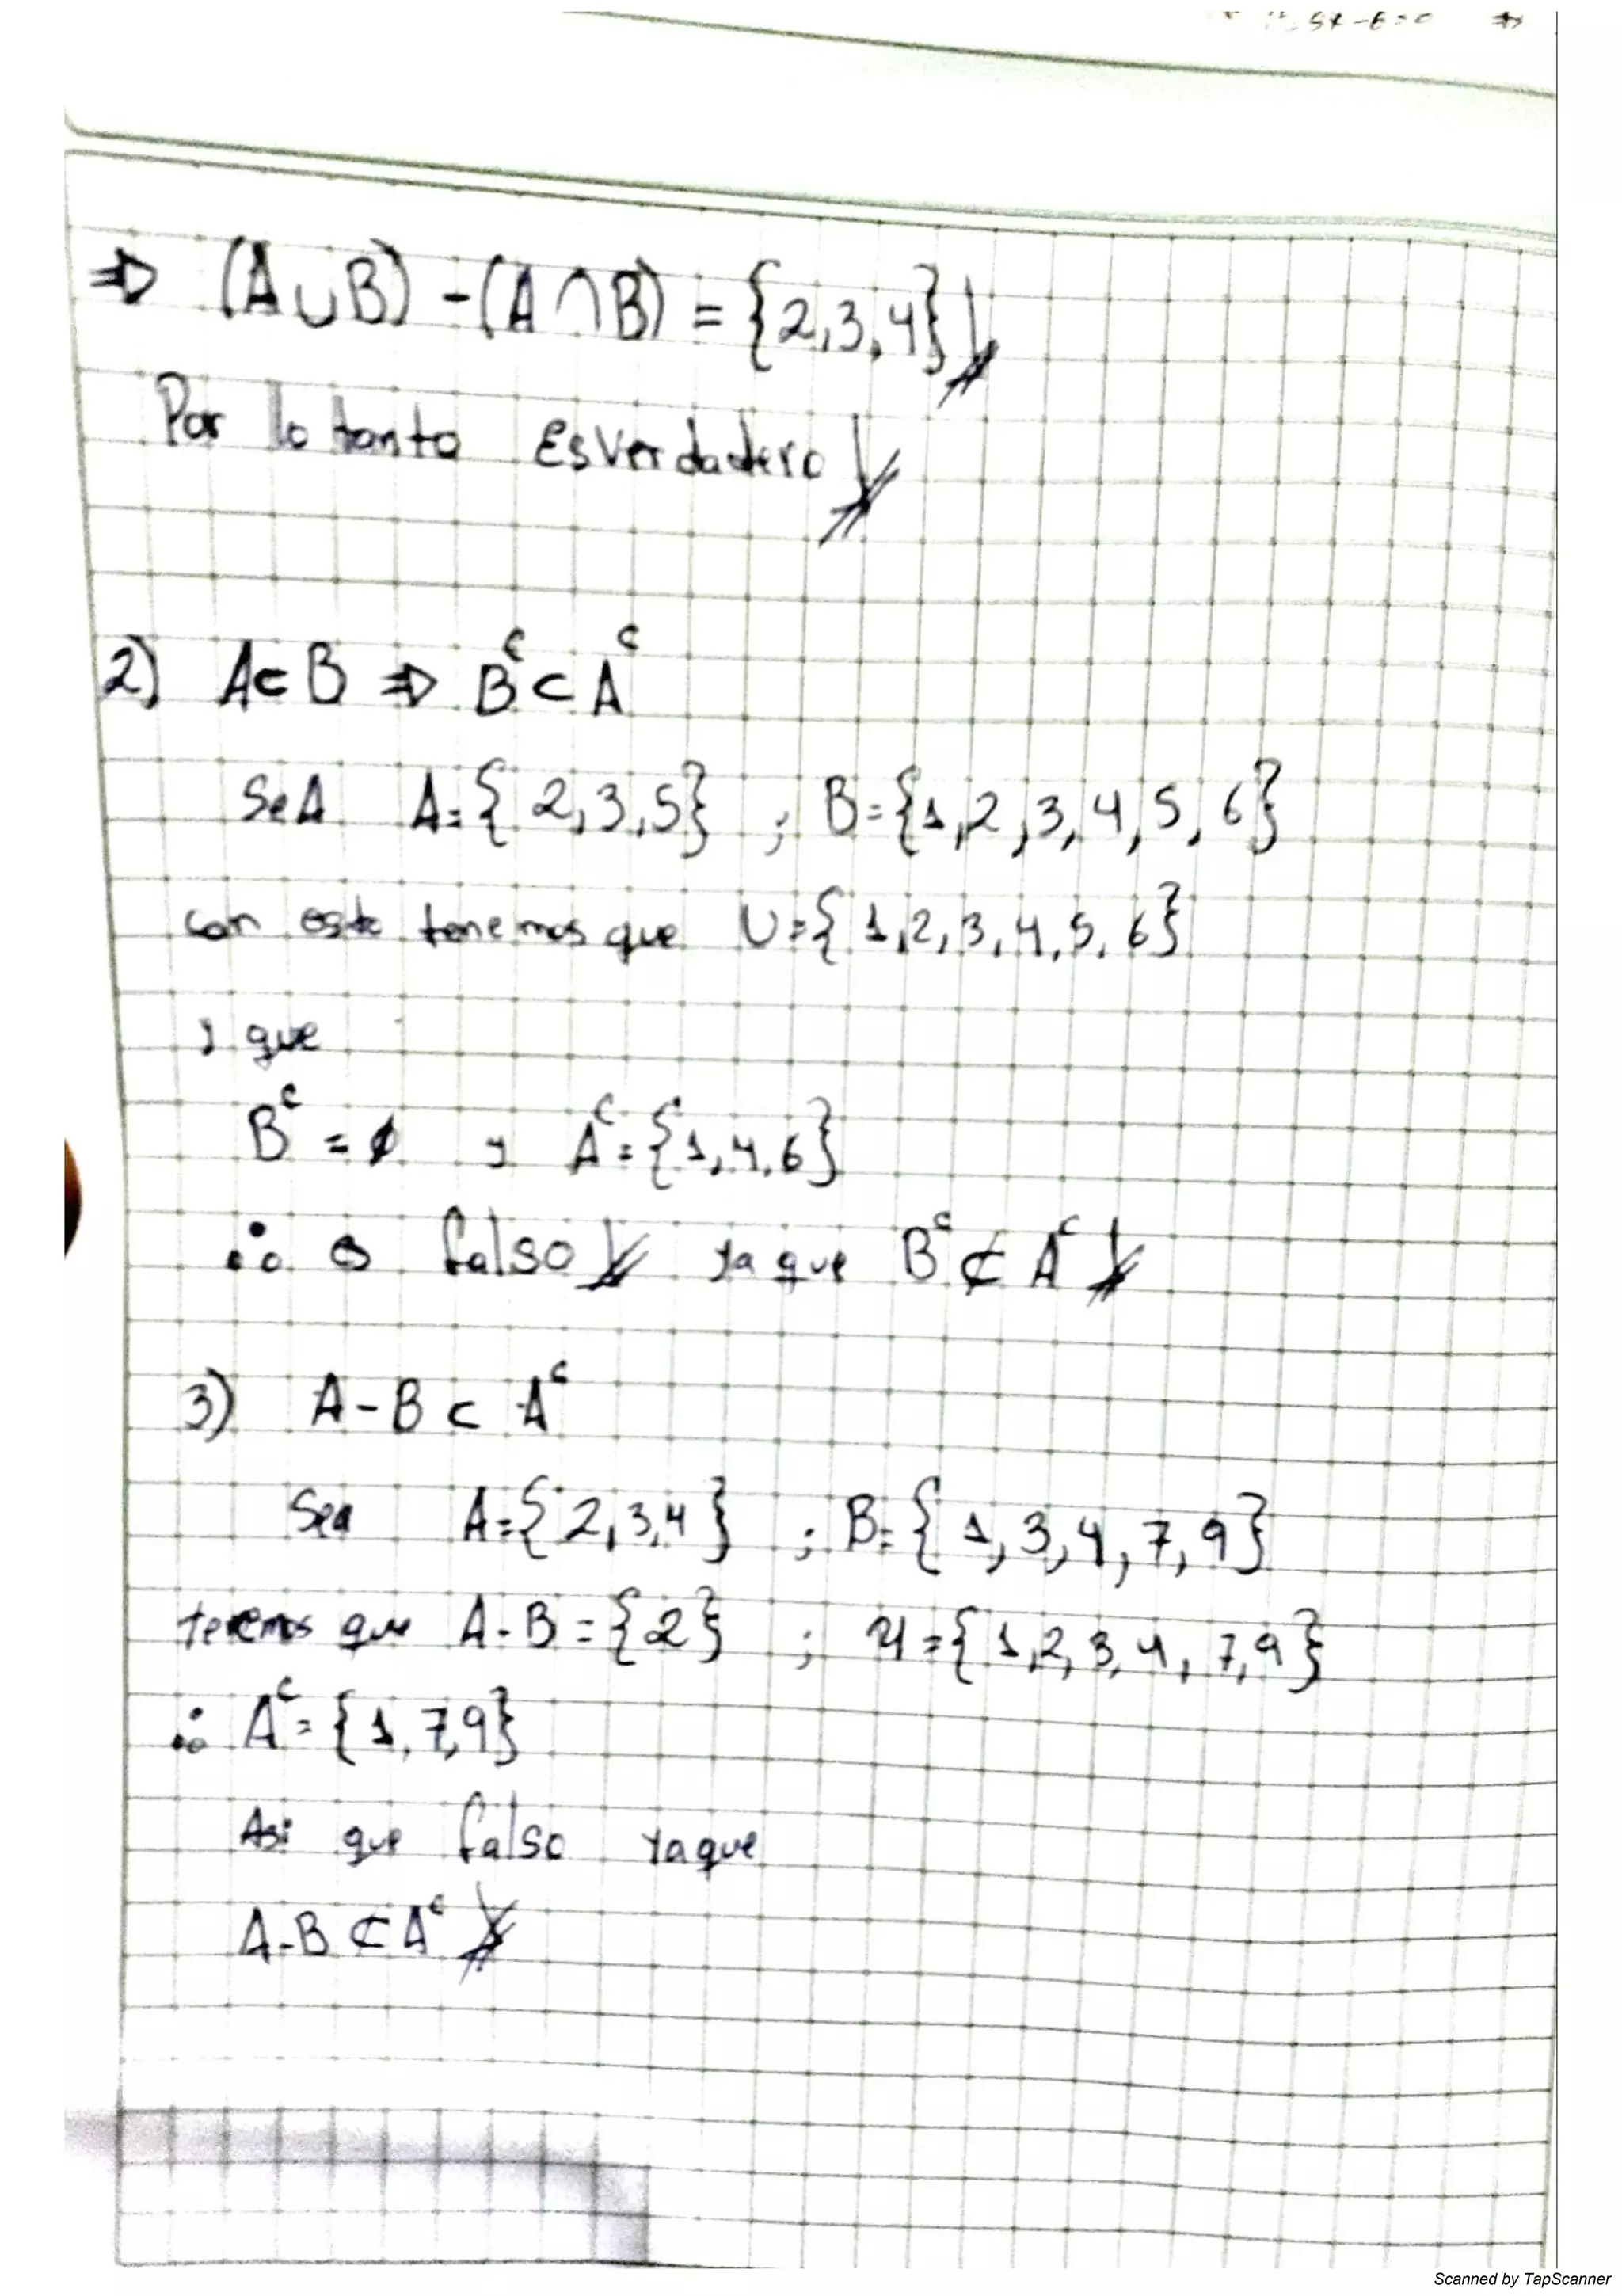 5x-6=0 ⇒
⇒ (A∪B) - (A∩B) = {2,3,4}
Por lo tanto Es Verdadero
2) A⊂B ⇒ Bᶜ⊂Aᶜ
SeA A={2,3,5} ; B={1,2,3,4,5,6}
con este tenemos que U={1,2,3,4,5,6}
y que
Bᶜ=∅ y Aᶜ={1,4,6}
∴ es falso ya que Bᶜ⊄Aᶜ
3) A-B⊂Aᶜ
Sea A={2,3,4} ; B={1,3,4,7,9}
tenemos que A-B={2} ; U={1,2,3,4,7,9}
∴ Aᶜ={1,7,9}
Asi que falso ya que
A-B⊄Aᶜ
Scanned by TapScanner